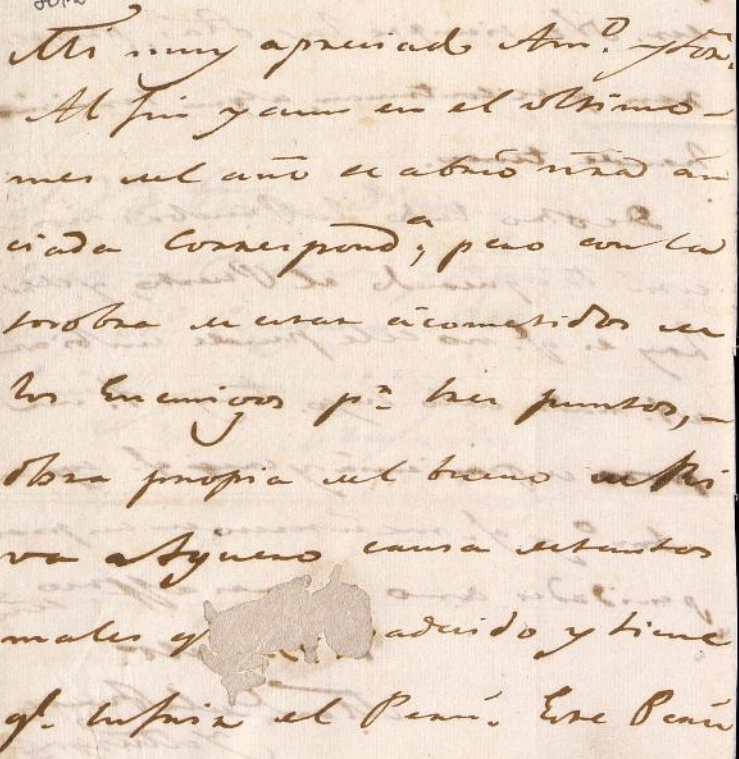 Mi muy apreciado Am.º y Sor.
Al fin y aun en el ultimo
mes del año se abrio nrã an
ciada Correspond.ª; pero con la
sosobra de estar acometidos de
los Enemigos p.r tres puntos,
obra propia del bueno de Ri
va Aguero causa de tantos
males q aducido y tiene
q.e sufrir el Perú. Este Perú